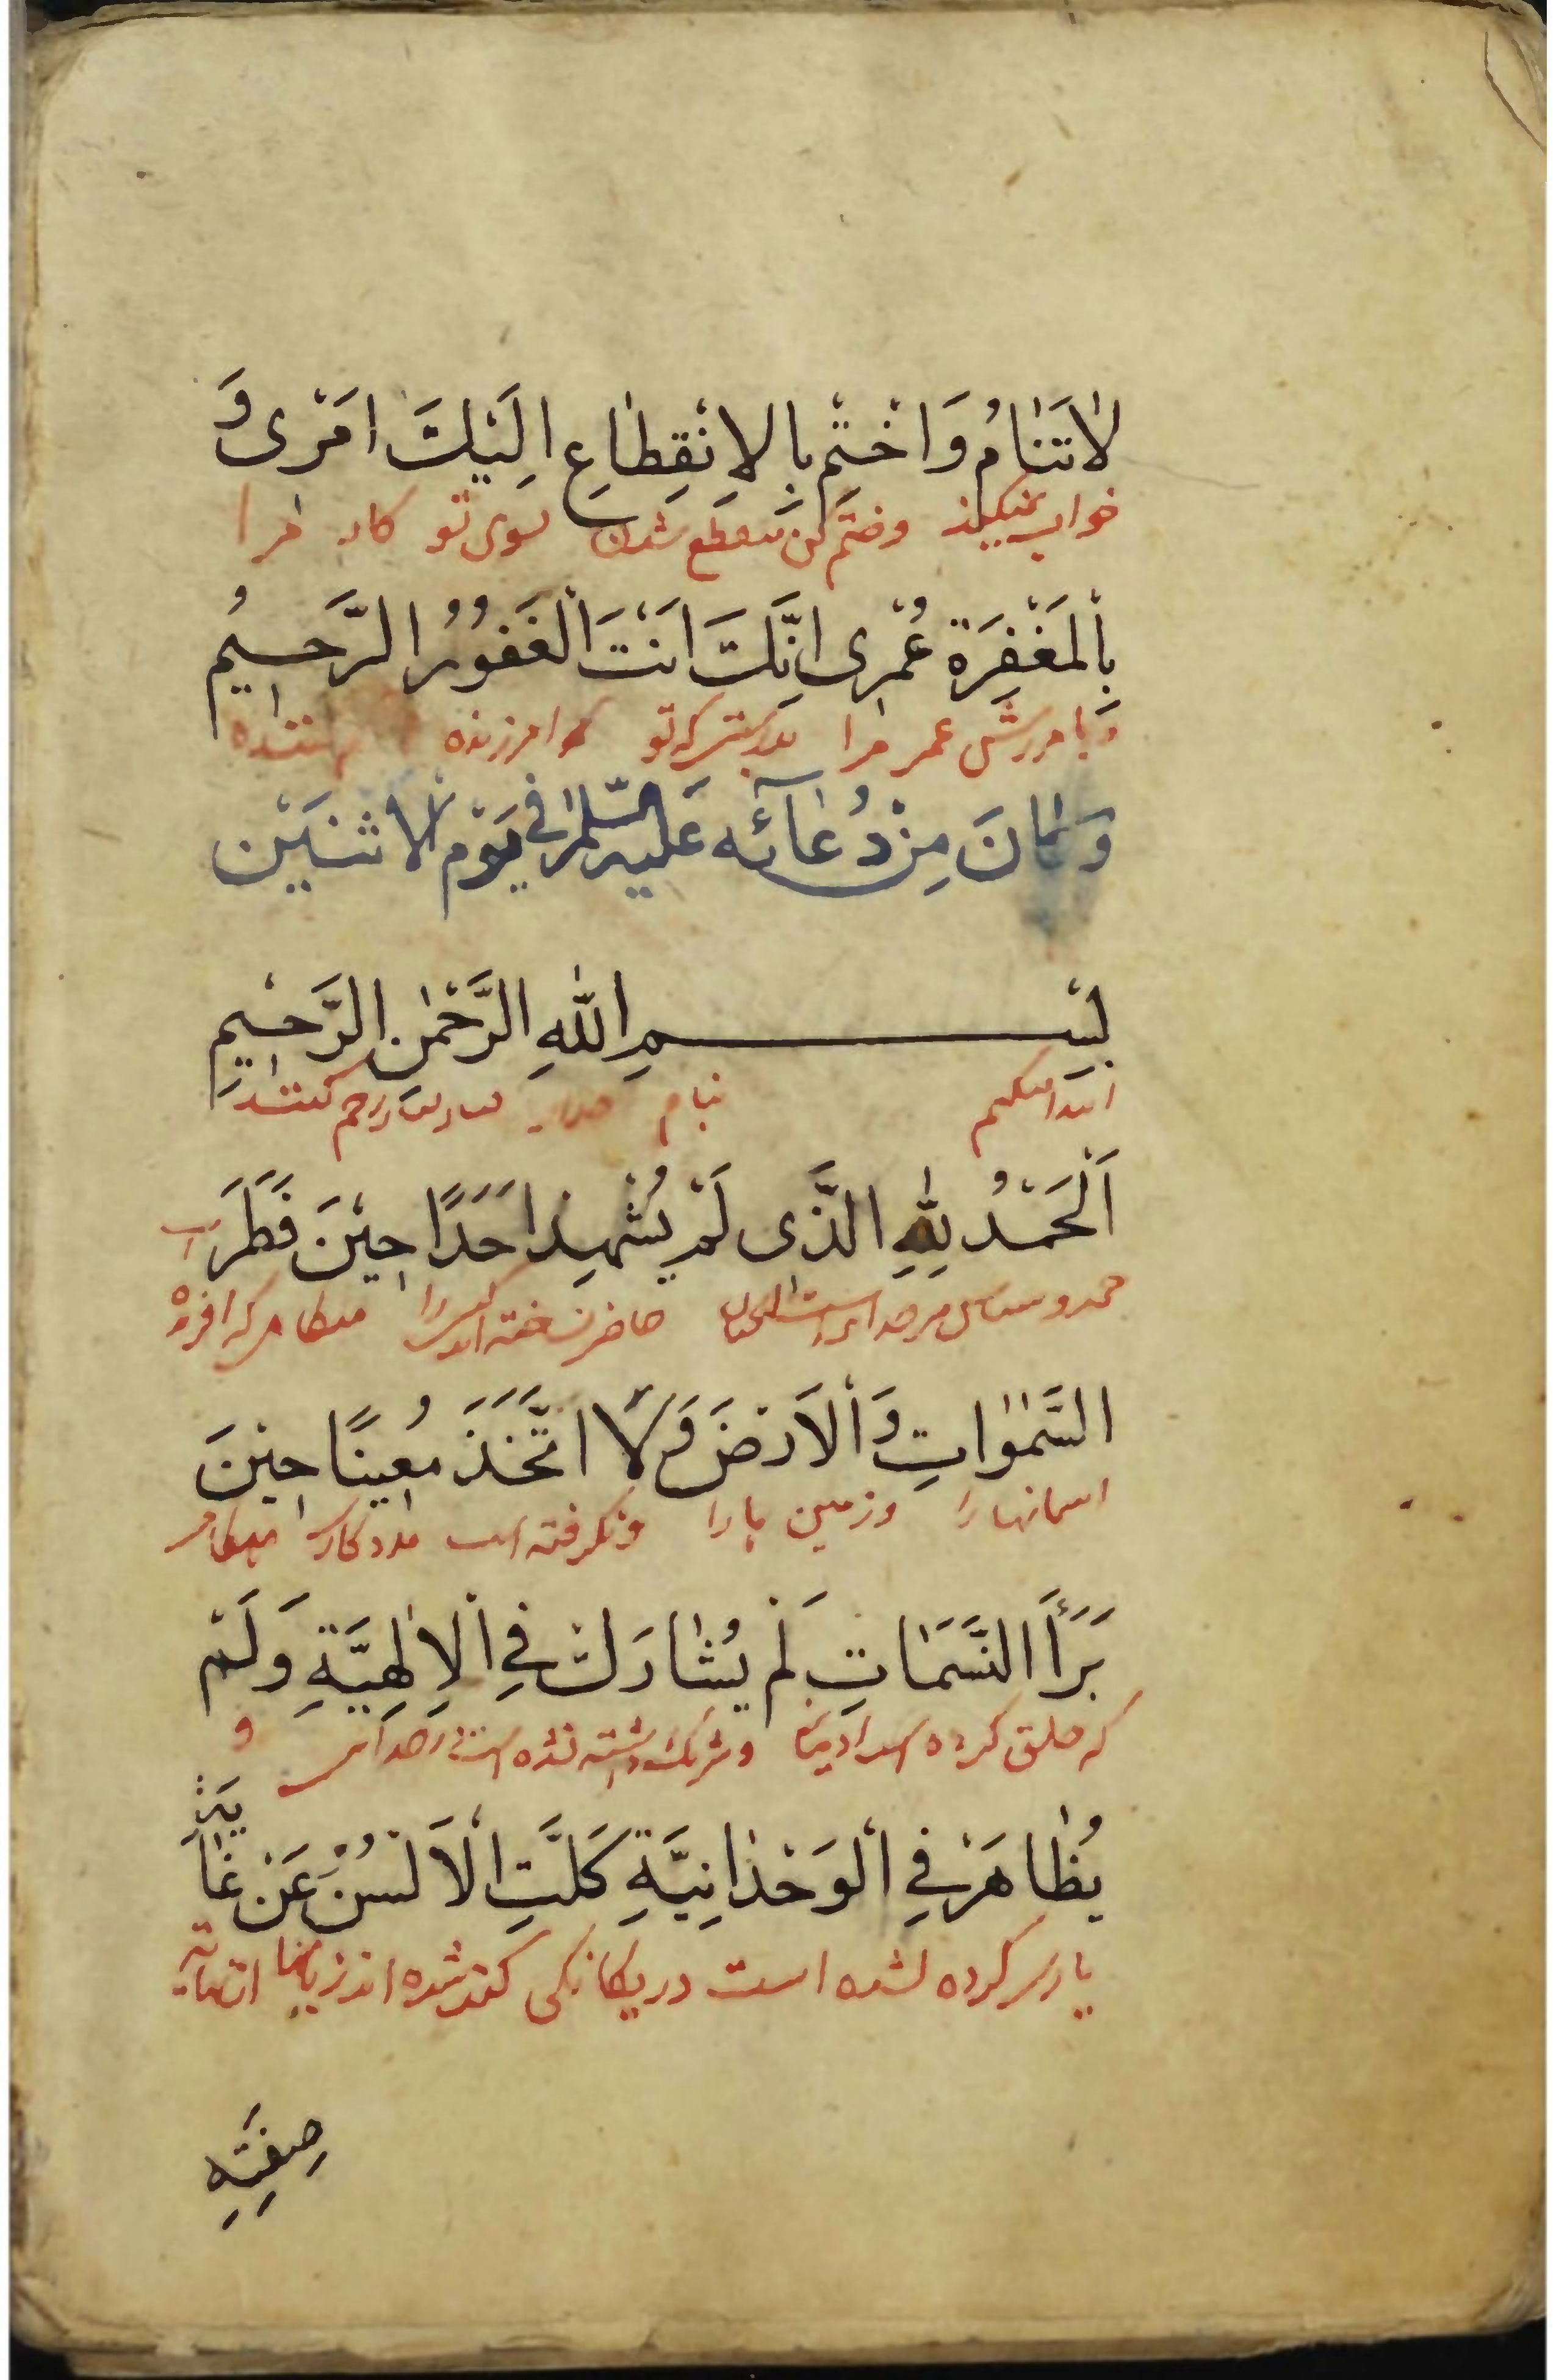 لٰا تَنٰامُ وَاخْتِمْ بِالاِنْقِطٰاعِ اِلَيْكَ اَمْرى وَ
خواب نمیکند وختم کن منقطع شدن بسوی تو کار مرا
بِالْمَغْفِرَةِ عُمْرى اِنَّكَ اَنْتَ الْغَفُوْرُ الرَّحيمُ
وبامرزش عمر مرا بدرستیکه تو امرزنده
وَكٰانَ مِنْ دُعٰآئه عَلَيه السَّلٰمْ في يَوْمِ الْاثنَيْن
بِسْمِ اللّٰهِ الرَّحْمٰنِ الرَّحيْمِ
ابتدا میکنم بنام خدای رحم کننده
اَلْحَمْدُ لِلّٰهِ الَّذى لَمْ يُشْهِدْ اَحَدًا حيْنَ فَطَرَ
حمد وسپاس مر خدایراست حاضر نساخته کسیرا که افریده است
السَّمٰوٰاتِ وَالْاَرْضَ وَلَا اتَّخَذَ مُعينًا حيْنَ
اسمانها را وزمین ها را ونگرفته است مددکاری
بَرَأَ النَّسَمٰاتِ لَمْ يُشٰارَكْ فِي الْاِلٰهِيَّةِ وَلَمْ
که خلق کرده وشریک داشته نشده است در خدایی و
يُظٰاهَرْ فِي الْوَحْدٰانِيَّةِ كَلَّتِ الْاَلْسُنُ عَنْ غٰايَةِ
یاری کرده نشده است در یکانکی کند شده اند زبانها
صِفَتِهِ